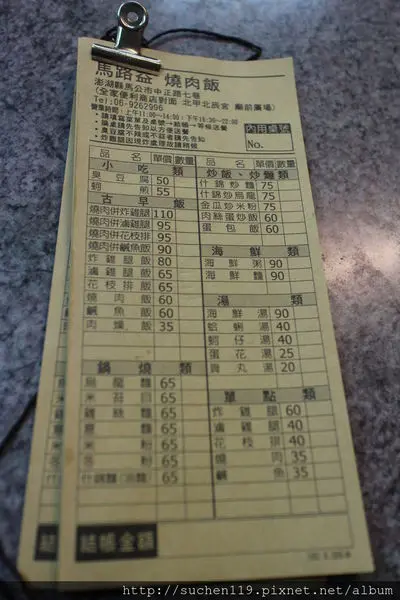 馬路益 燒肉飯
澎湖縣馬公市中正路七巷
(全家便利商店對面 北甲北辰宮 廟前廣場)
Tel:06-9262996
營業時間:上午11:00~14:00;下午16:30~22:00
內用桌號
No.
品名 單價 數量
小吃類
臭豆腐 50
蚵煎 55
古早飯
燒肉併炸雞腿 110
燒肉併滷雞腿 95
燒肉併花枝排 95
燒肉併鹹魚飯 90
炸雞腿飯 80
滷雞腿飯 65
花枝排飯 65
燒肉飯 60
鹹魚飯 60
肉燥飯 35
鍋燒類
烏龍麵 65
米苔目 65
雞絲麵 65
意麵 65
米粉 65
冬粉 65
什錦麵 65
結帳金額
品名 單價 數量
炒飯、炒麵類
什錦炒麵 75
什錦炒烏龍 75
金瓜炒米粉 75
肉絲蛋炒飯 60
蛋包飯 60
海鮮類
海鮮粥 90
海鮮麵 90
湯類
海鮮湯 90
蛤蜊湯 40
蚵仔湯 40
蛋花湯 25
貢丸湯 20
單點類
炸雞腿 60
滷雞腿 40
花枝排 40
燒肉 35
鹹魚 35
結
http://suchen119.pixnet.net/album